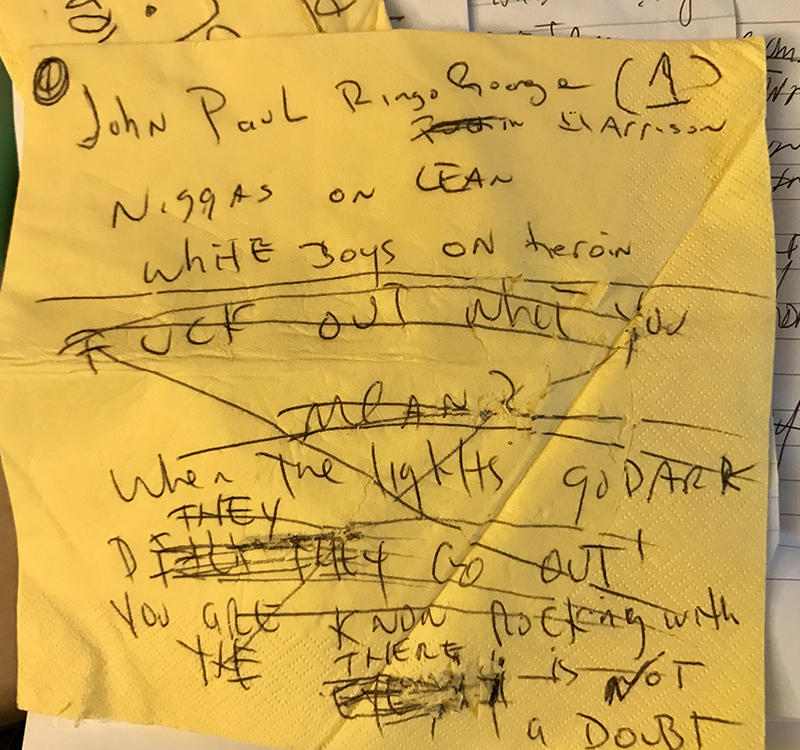 ① John Paul Ringo George (1)
Harrison
Niggas on LEAN
WHITE Boys ON Heroin
FUCK OUT WHAT YOU
MEAN?
When The lights go DARK
THEY
THEY GO OUT
You ARE KNON ROCKING with
THERE is NOT
a DOUBT